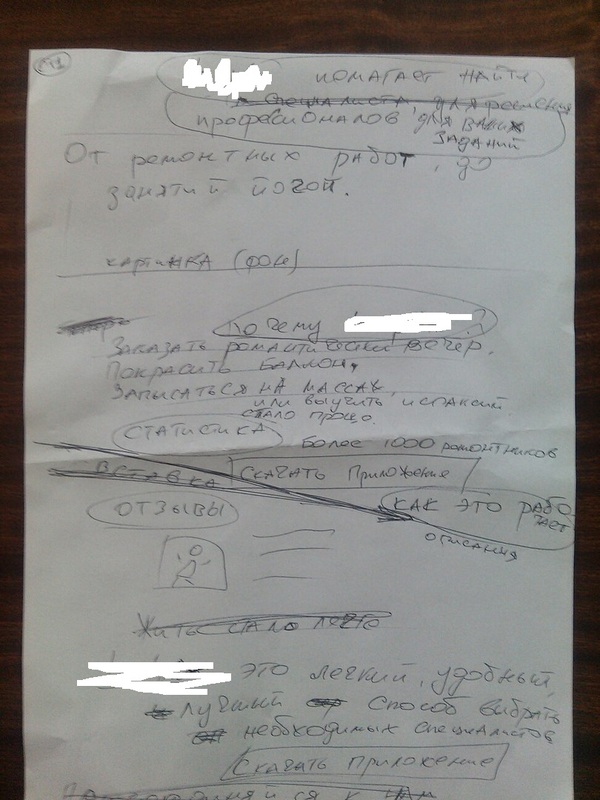 помагает найти
специалиста для решения
професионалов для ваших
заданий
От ремонтных работ, до
занятий йогой.
картинка (фон)
Почему ?
Заказать романтический вечер,
Покрасить балкон,
Записаться на массаж,
или выучить испанский
стало проще.
СТАТИСТИКА
Более 1000 ремонтников
ВСТАВКА
Скачать приложение
ОТЗЫВЫ
КАК ЭТО РАБО
ТАЕТ
описания
Жить стало легче
это легкий, удобный,
лучший способ выбрать
необходимых специалистов
Скачать приложение